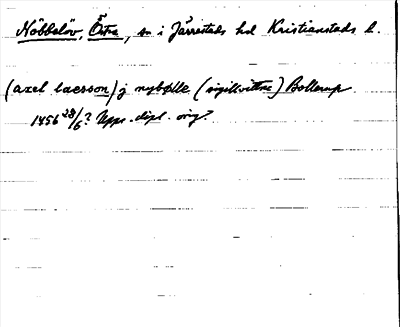 Nöbbelöv, Östra, sn i Järrestads hd Kristianstads l.
(axel lacsson) j nybølle (sigillvittne) Bollerup.
1456 28/6? Upps. dipl. orig?